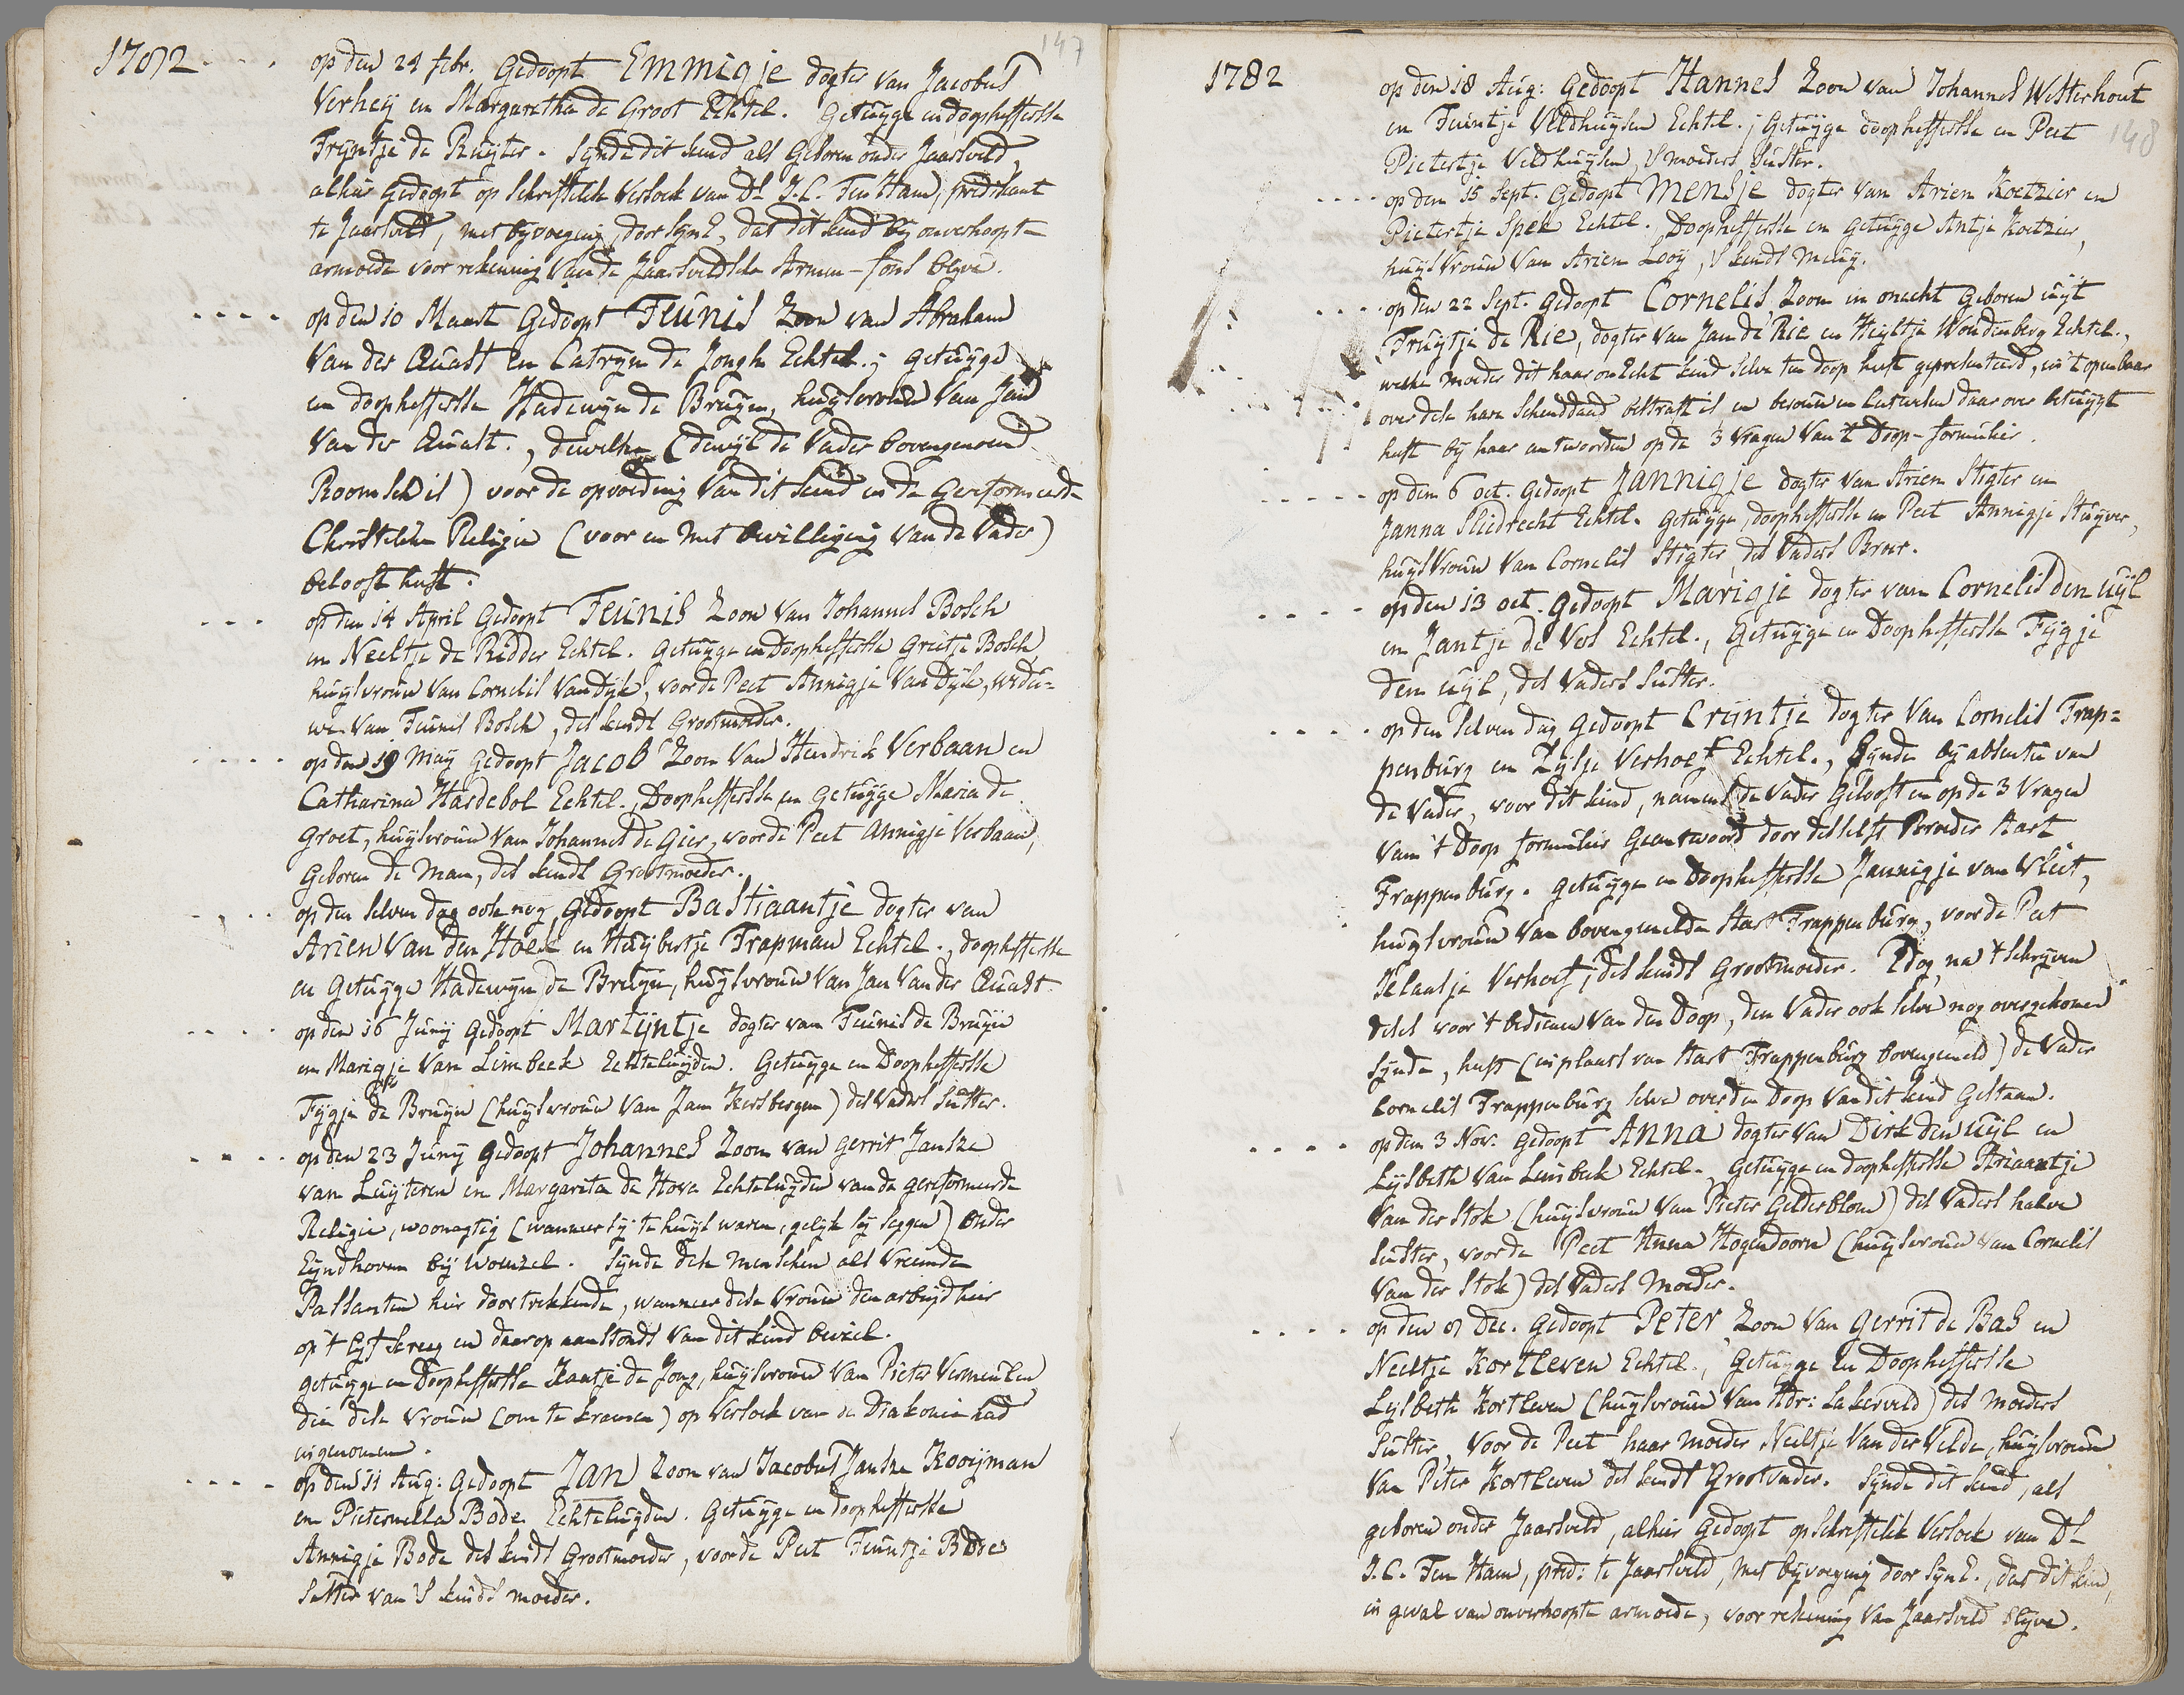 147
1782 - - - op den 24 febr. Gedoopt Emmigje dogter van Jacobus
Verheij en Margaretha de Groot Echtel. Getuijge en doopheffersse
Trijntje de Ruijter. Synde dit kind als Geboren onder Jaarsveld,
alhier Gedoopt op Schriftelik Versoek van Ds. J.C. Ten Ham, predikant
te Jaarsveld, met byvoeging door SynE, dat dit kind bij onverhoopte
armoede voor rekening van de Jaarsveldsche Armen-fons blyve.
- - - - op den 10 Maart Gedoopt Teunis Zoon van Abraham
Van der Quast en Catryn de Jongh Echtel.; Getuijge
en doopheffersse Hadewyn de Bruijn, huijsvrouw van Jan
Van der Quast., dewelke (dewijl de Vader bovengenoemd
Roomsch is) voor de opvoeding van dit kind in de Gereformeerde
Christelike Religie (voor en met bewilliging van de Vader)
belooft heeft.
- - - op den 14 April Gedoopt Teunis Zoon van Johannes Bosch
en Neeltje de Ridder Echtel. Getuijge en Doopheffersse Grietje Bosch
huijsvrouw van Cornelis van Dijk, voor de Peet Annigje van Dijk, wedu-
we van Teunis Bosch, des kinds Grootmoeder.
- - - - op den 19 Maij Gedoopt Jacob Zoon van Hendrik Verbaan en
Catharina Hardebol Echtel., Doopheffersse en Getuijge Maria de
Groet, huijsvrouw van Johannes de Gier, voor de Peet Annigje Verbaan,
Geboren de Man, des kinds Grootmoeder.
- - - op den selven dag ook nog Gedoopt Bastiaantje dogter van
Arien van den Hoek en Huijbertje Trapman Echtel., doopheffersse
en Getuijge Hadewijn de Bruijn, huijsvrouw van Jan van der Quast
- - - - op den 16 Junij Gedoopt Martijntje dogter van Teunis de Bruijn
en Marigje van Limbeek Echteluijden. Getuijge en Doopheffersse
Fijgje de Bruijn (huijsvrouw van Jan Kersbergen) des Vaders Suster.
- - - - op den 23 Junij Gedoopt Johannes Zoon van Gerrit Janse
van Luijteren en Margarita de Hove Echteluijden van de gereformeerde
Religie, woonagtig (wanneer sij te huijs waren, gelijk sij seggen) onder
Eijndhoven bij Woenzel. Synde dese menschen als vreemde
Passanten hier doortrekkende, wanneer dese vrouw den arbeijd hier
op 't lijf kreeg en daarop aanstonds van dit kind beviel.
getuijge en Doopheffersse Jaantje de Jong, huijsvrouw van Pieter Vermeulen
die dese vrouw (om te kramen) op Versoek van de Diakonie had
ingenomen.
- - - - op den 11 Aug: Gedoopt Jan Zoon van Jacobus Janse Kooijman
en Pieternella Bode Echteluijden. Getuijge en doopheffersse
Annigje Bode des kinds Grootmoeder, voor de Peet Teuntje Bode
Suster van 's kinds moeder.
148
1782 op den 18 Aug: Gedoopt Hannes Zoon van Johannes Westerhout
en Teuntje Veldhuijsen Echtel.; Getuijge doopheffersse en Peet
Pietertje Veldhuijsen, 's moeders Suster.
- - - - op den 15 Sept. Gedoopt Mensje dogter van Arien Koetzier en
Pietertje Spek Echtel. Doopheffersse en Getuijge Antje Koetzier,
huijsvrouw van Arien Looij, 's kinds meuij.
- - - - op den 22 Sept. Gedoopt Cornelis, Zoon in onecht Geboren uijt
Truijtje de Rie, dogter van Jan de Rie en Heijltje Woudenberg Echtel.,
welke moeder dit haar onEcht kind selve ten doop heeft gepresenteerd, en 't openbaar
over dese hare Schenddaad bestraft is en berouw en leetwesen daar over betuijgt
heeft bij haar antwoorden op de 3 vragen van 't Doop-formulier.
- - - - - op den 6 oct. Gedoopt Jannigje dogter van Arien Stigter en
Janna Sliedrecht Echtel. Getuijge, doopheffersse en Peet Annigje Stuijver,
huijsvrouw van Cornelis Stigter, des Vaders Broer.
- - - - op den 13 oct. Gedoopt Marigje dogter van Cornelis den Uijl
en Jantje de Vos Echtel., Getuijge en Doopheffersse Fijgje
den Uijl, des Vaders Suster.
- - - - op den selven dag Gedoopt Crijntje dogter van Cornelis Trap-
penburg en Zijlje Verhoef Echtel., Synde bij absentie van
de Vader, voor dit kind, namens de Vader Gelooft en op de 3 Vragen
van 't Doop formulier Geantwoord door desselfs Broeder Aart
Trappenburg. Getuijge en Doopheffersse Jannigje van Vliet,
huijsvrouw van bovengemelde Aart Trappenburg, voor de Peet
Jelaatje Verhoef, des kinds Grootmoeder. Edog, na 't schrijven
deses voor 't bedienen van den Doop, den Vader ook selve nog overgekomen
sijnde, heeft (in plaats van Aart Trappenburg bovengemeld) de Vader
Cornelis Trappenburg selve over den Doop van dit kind Gestaan.
- - - - op den 3 Nov: Gedoopt Anna dogter van Dirk den Uijl en
Lijsbeth van Limbeek Echtel. Getuijge en doopheffersse Ariaantje
Van der Stok (huijsvrouw van Pieter Gelderblom) des Vaders halve
Suster, voor de Peet Anna Hogendoorn (huijsvrouw van Cornelis
Van der Stok) des Vaders Moeder.
- - - - op den 8 Dec. Gedoopt Peter Zoon van Gerrit de Bas en
Neeltje Kortleven Echtel., Getuijge en Doopheffersse
Lijsbeth Kortleven (huijsvrouw van Adr: Lakerveld) des moeders
Suster, voor de Peet haar moeder Neeltje van der Velde, huijsvrouw
van Peter Kortleven des kinds Grootvader. Synde dit kind, als
geboren onder Jaarsveld, alhier Gedoopt op schriftelik Versoek van Ds.
J.C. Ten Ham, pred: te Jaarsveld, met bijvoeging door SynE., dat dit kind,
in geval van onverhoopte armoede, voor rekening van Jaarsveld blijve.